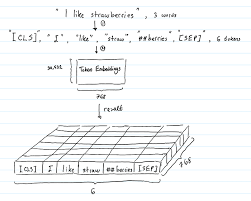 "I like strawberries", 3 words
①
"[CLS]", "I", "like", "straw", "##berries", "[SEP]", 6 tokens
②
Token Embeddings
768
↓ result
[CLS] I like straw ##berries [SEP]
768
6